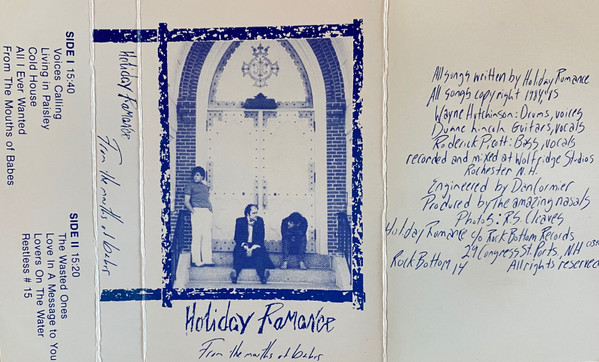 SIDE I 15:40
Voices Calling
Living in Paisley
Cold House
All I Ever Wanted
From The Mouths of Babes
SIDE II 15:20
The Wasted Ones
Love In A Message to You
Lovers On The Water
Restless # 15
Holiday Romance
From the mouths of babes
Holiday Romance
From the mouths of babes
All songs written by Holiday Romance
All songs copyright 1984,'85
Wayne Hutchinson: Drums, voices
Duane Lincoln Guitars, vocals
Roderick Pratt: Bass, vocals
recorded and mixed at Wolfridge Studios
Rochester N.H.
Engineered by Don Cormier
Produced by the amazing nasals
Photos: R.S. Cleaves
Holiday Romance c/o Rock Bottom Records
Congress St. Ports, NH
Rock Bottom 14 All rights reserved